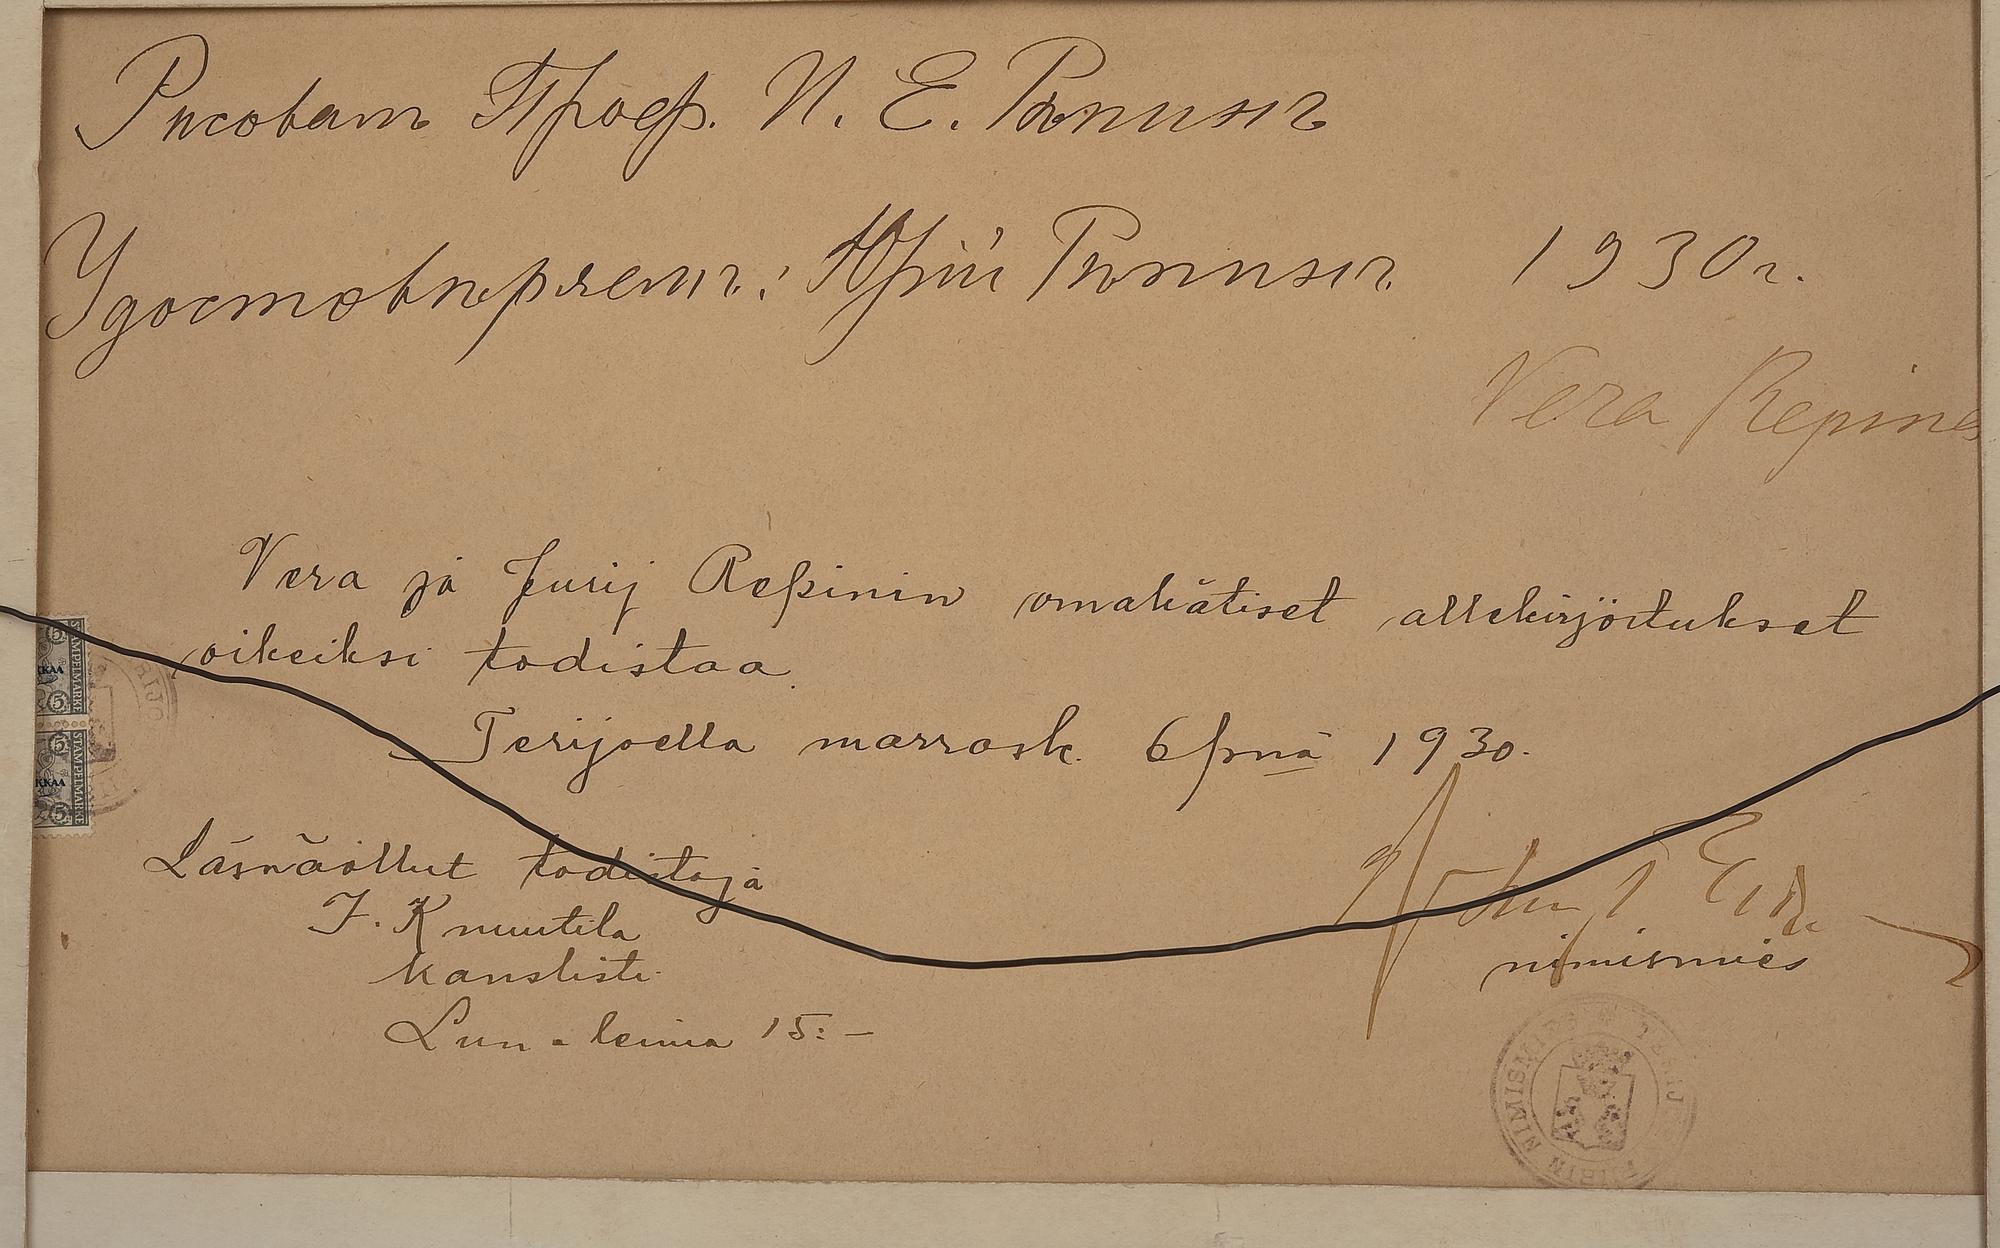 Рисовалъ Проф. И. Е. Рѣпинъ
Удостовѣряетъ: Юрій Рѣпинъ 1930 г.
Vera Repine
Vera ja Jurij Repinin omakätiset allekirjoitukset
oikeiksi todistaa.
Terijoella marrask. 6 pnä 1930.
Läsnäollut todistaja
J. Knuutila
kanslisti
nimismies
Lun-leima 15:-
KKAA
5
5
STAMPELMARKE
KKAA
5
5
STAMPELMARKE
NIMISMIES